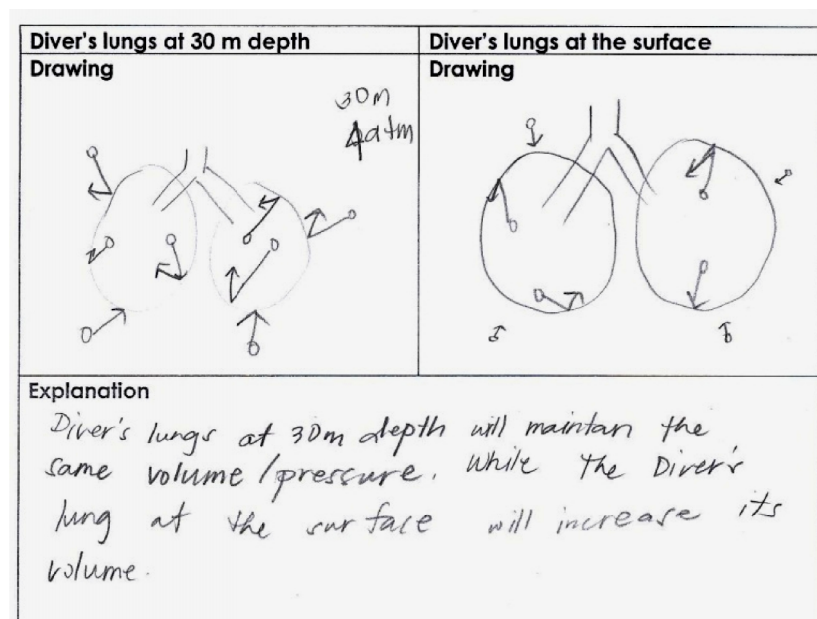 Diver's lungs at 30 m depth
Diver's lungs at the surface
Drawing
Drawing
30m
4atm
Explanation
Diver's lungs at 30m depth will maintan the
same volume/pressure. While the Diver's
lung at the surface will increase its
volume.